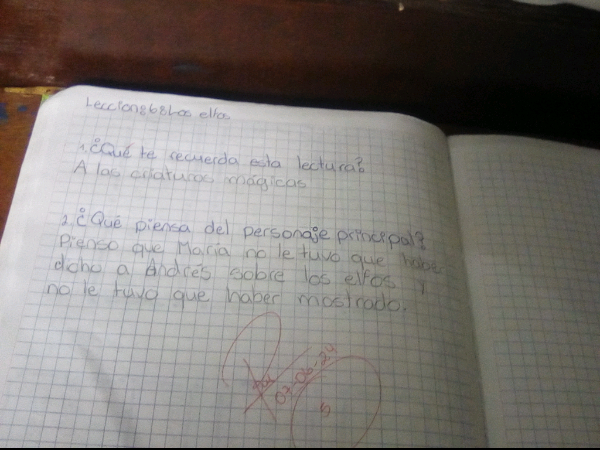 Leccion868Los elfos
1.¿Qué te recuerda esta lectura?
A las criaturas mágicas
2.¿Qué piensa del personaje principal?
Pienso que María no le tuvo que haber
dicho a Andrés sobre los elfos y
no le tuvo que haber mostrado.
07-06-24
5